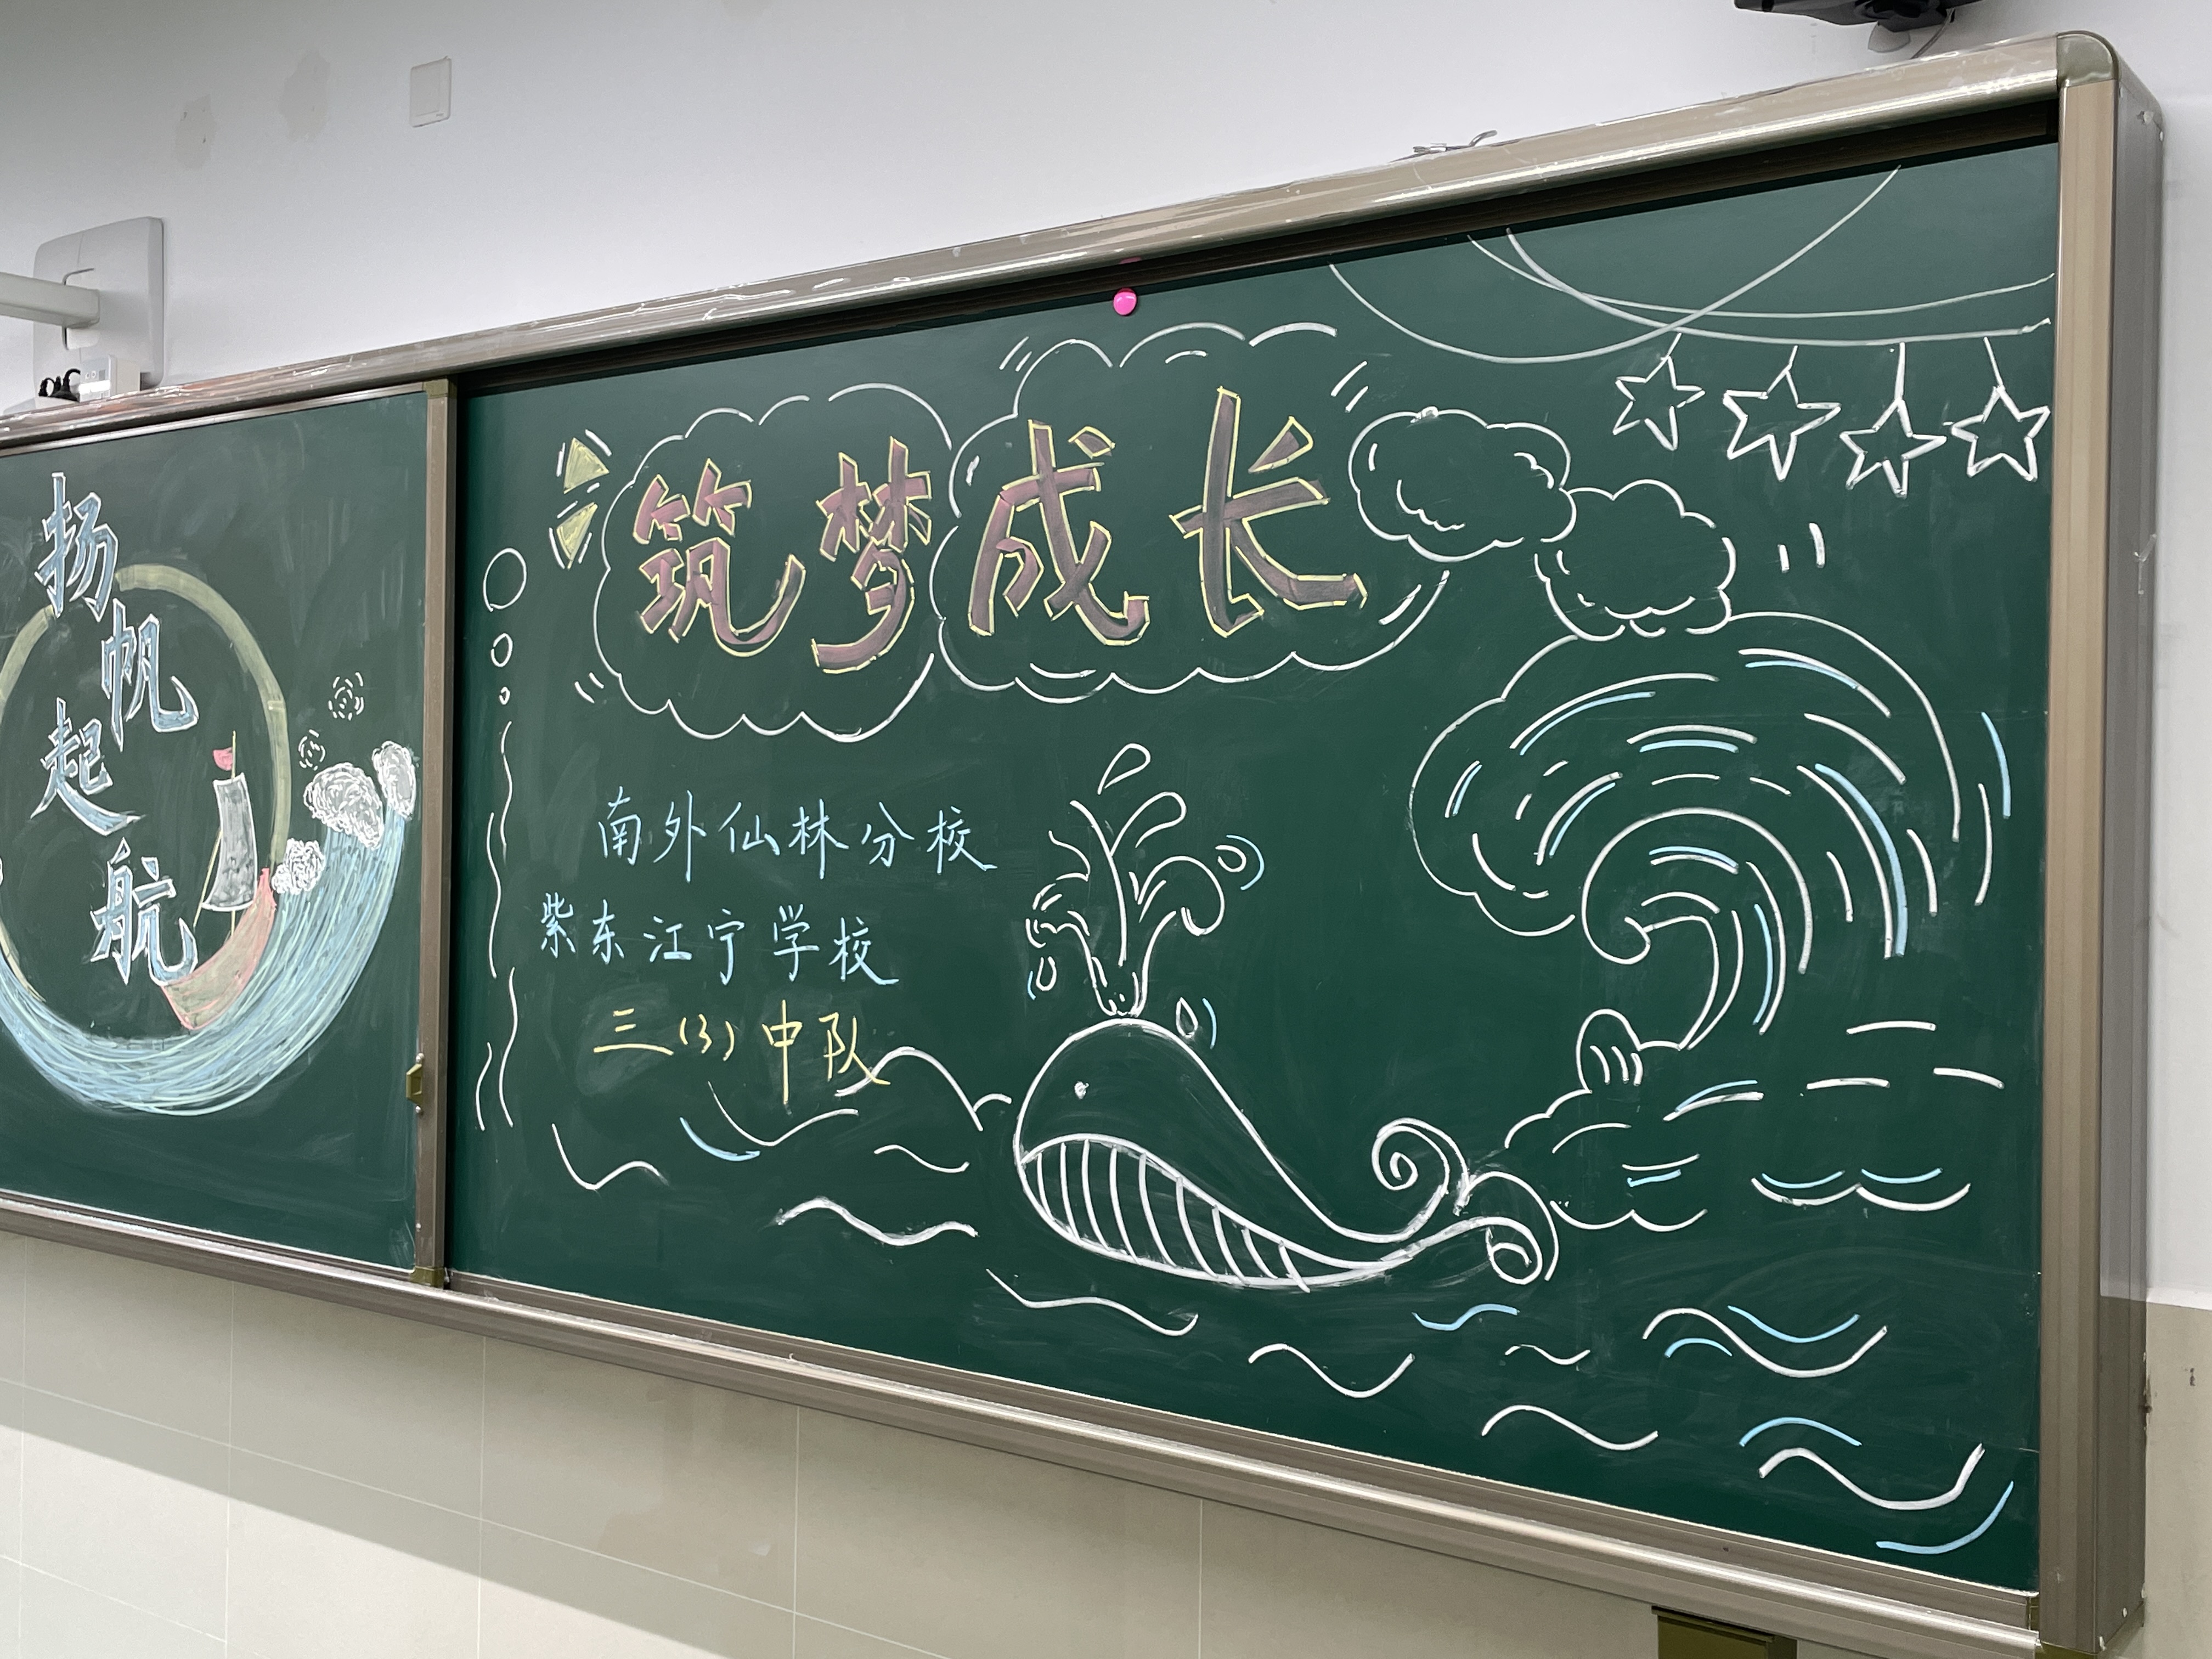 扬帆起航
筑梦成长
南外仙林分校
紫东江宁学校
三(3)中队